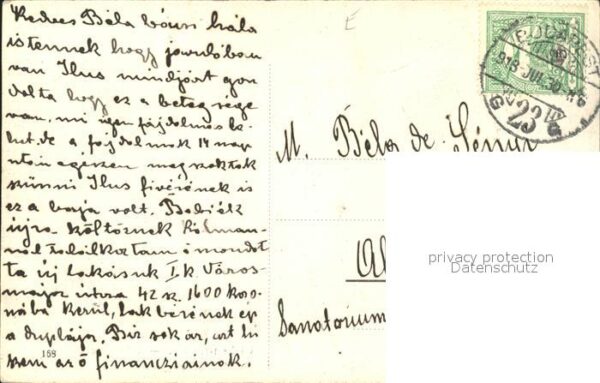 Kedves Béla bácsi hála
istennek hogy javulóban
van Ilus mindjárt gon
dolta hogy ez a betegsége
van, mi igen fájdalmas le-
het, de a fájdalmak 14 nap
után egészen megszoktak
szünni Ilus fivérének is
ez a baja volt.
újra költöznek
találkoztam ő mondot
ta új lakásuk I. k. Város-
major utcza 42 sz. 1600 koro-
nába kerül, lakbérének ép
a duplája. Biz sok az, azt hi
szem az ő financziáinok.
159
E
M. Béla de
Sanatorium
BUDAPEST
918 JUL
23
privacy protection
Datenschutz